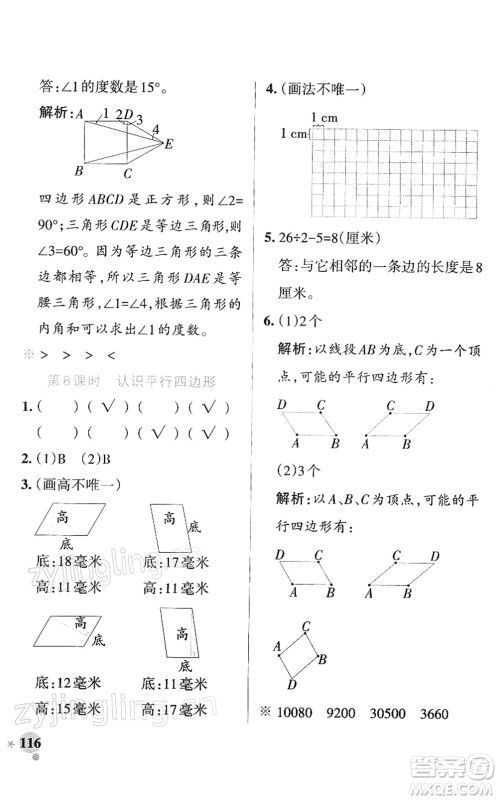 答：∠1的度数是15°。
解析：
A
2
D
1
3
4
E
B
C
四边形ABCD是正方形，所以∠2=
90°；三角形CDE是等边三角形，
∠3=60°。因为等边三角形的三条
边都相等，所以三角形DAE是等
腰三角形，然后根据三角形的
内角和可以求出∠1的度数。
※ > > > <
第8课时 认识平行四边形
1.( ) (√) ( ) (√)
( ) (√) (√) ( )
2.(1)B (2)B
3.(画高不唯一)
高
底
高
底
底：18毫米 底：17毫米
高：11毫米 高：11毫米
高
底
高
底
底：12毫米 底：11毫米
高：15毫米 高：17毫米
※ 116
4.(画法不唯一)
1 cm
1 cm
5.26÷2-5=8(厘米)
答：与它相邻的一条边的长度是8
厘米。
6.(1)2个
解析：以线段AB为底，C为一个顶
点，可能的平行四边形有：
D C C D
A B A B
(2)3个
解析：以A、B、C为顶点，可能的平
行四边形有：
D C C D
A B A B
C
A
B
D
※ 10080 9200 30500 3660
zyjingling.cn
zyjingling.cn
答案圈
MXQE.COM